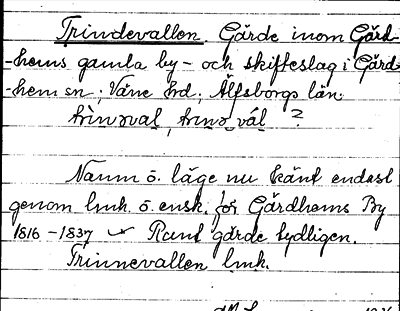 Trindevallen Gärde inom Gärd-
-hems gamla by- och skifteslag i Gärd-
-hem sn; Väne hd; Älfsborgs län.
trìnəval, trınə vál ?
Namn o. läge nu känt endast
genom lmh. o. ensk. för Gärdhems By
1816-1837 Runt gärde tydligen.
Trinnevallen lmh.